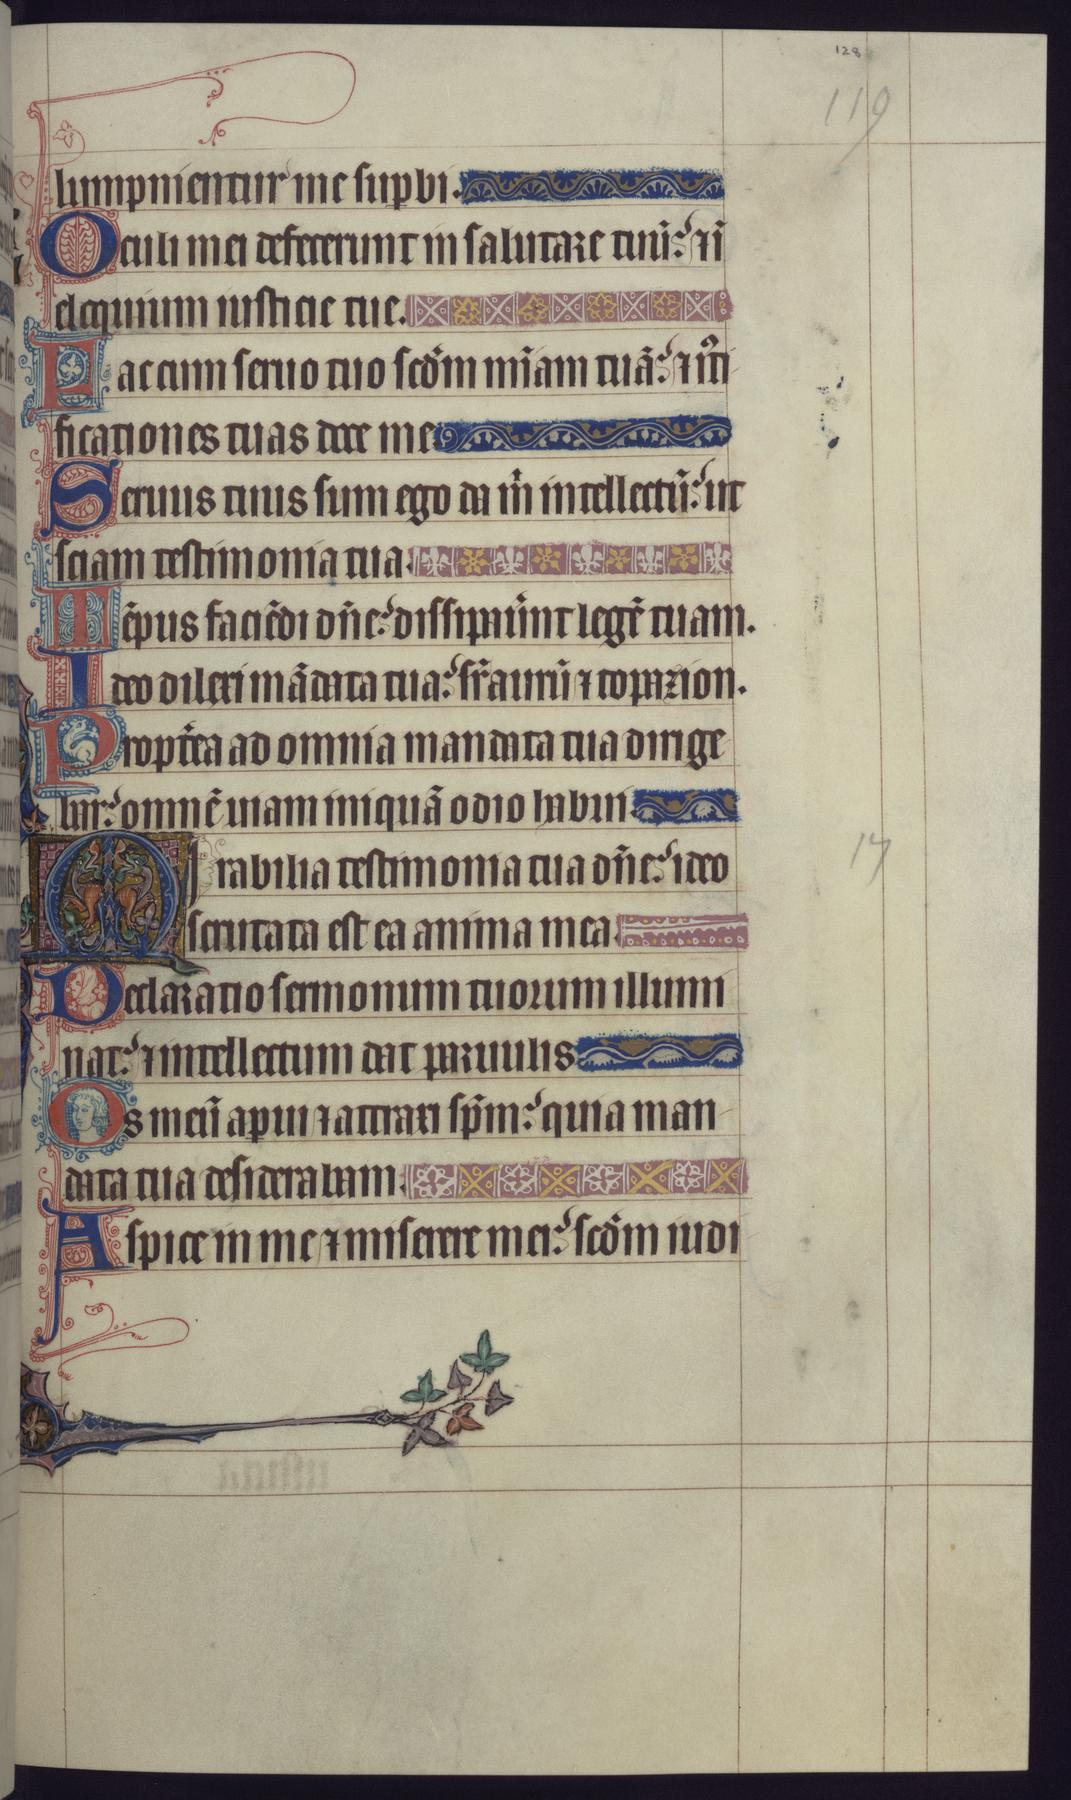 128
119
lumpnientur me supbi.
Oculi mei defecerunt in salutare tuū: ⁊ ī
eloquium iusticie tue.
Fac cum seruo tuo scd̄m mīam tuā: ⁊ iusti
ficationes tuas doce me
Seruus tuus sum ego da m̄ intellectū: ut
sciam testimonia tua.
Tēpus faciēdi dn̄e: dissipauer̄nt legē tuam.
Ideo dilexi mādata tua: sr̄ aurū ⁊ topazion.
Propt̄ea ad omnia mandata tua dirige
bar: omnē uiam iniquā odio habui.
Mirabilia testimonia tua dn̄e: ideo
17
scrutata est ea anima mea.
Declaratio sermonum tuorum illumi
nat: ⁊ intellectum dat paruulis
Os meū apui ⁊ attraxi sp̄m: quia man
data tua desiderabam.
Aspice in me ⁊ miserere mei: scd̄m iudi